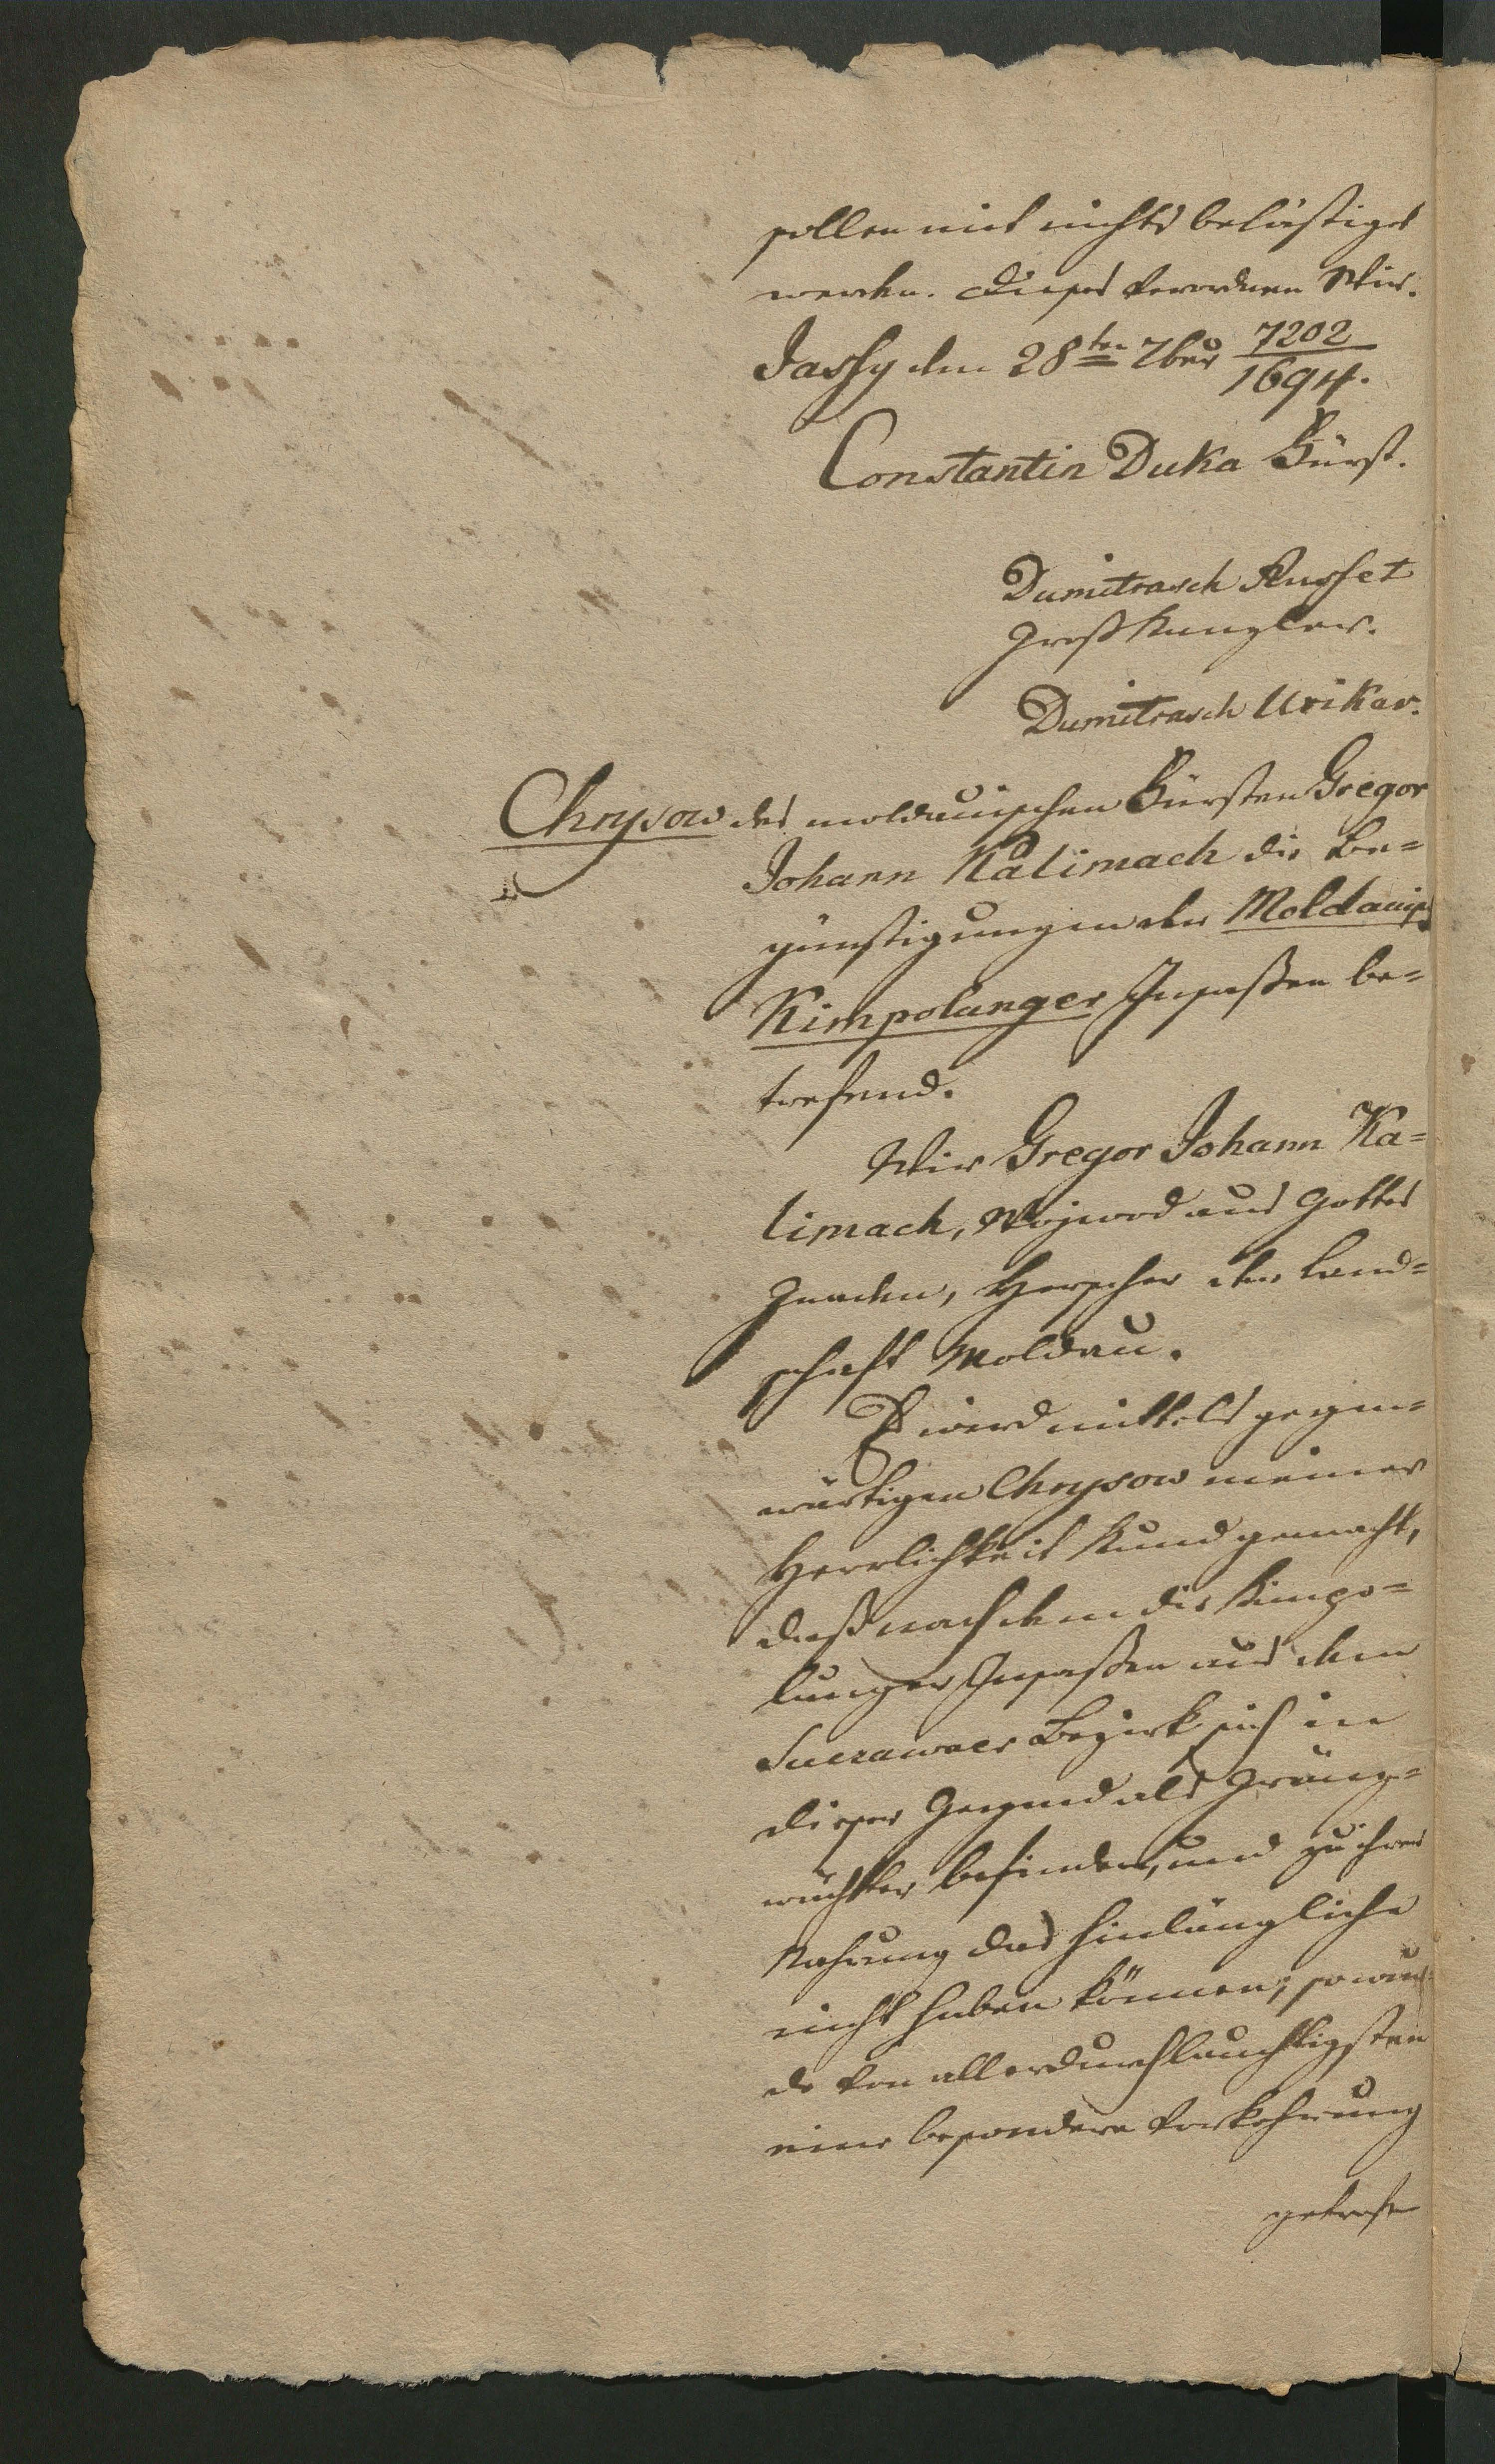 sollen mit nichts belästiget
werden. Dieses verordnen Wir.
Jassy den 28ten 7ber 7202/1694.
Constantin Duka Fürst.
Dumitrasch Russet
Großkanzler.
Dumitrasch Urikar.
Chrysow des moldauischen Fürsten Gregor
Johann Kalimach die Be=
günstigungen der Moldauisch
Kimpolunger Insaßen be=
trefend.
Wir Gregor Johann Ka=
limach, Wojwod aus Gottes
Gnaden, Herscher der Land=
schaft Moldau.
Es wird mittels gegen=
wärtigen Chrysow meiner
Herrlichkeit kund gemacht,
daß nach dem die Kimpo=
lunger Insaßen aus dem
Suczawaer Bezirk sich in
dieser Gegend als Gränz=
wächter befinden, und zu ihrer
Nahrung das hinlängliche
nicht haben können; so wur
de von allerdurchlauchtigsten
eine besondere Vorkehrung
getrofe